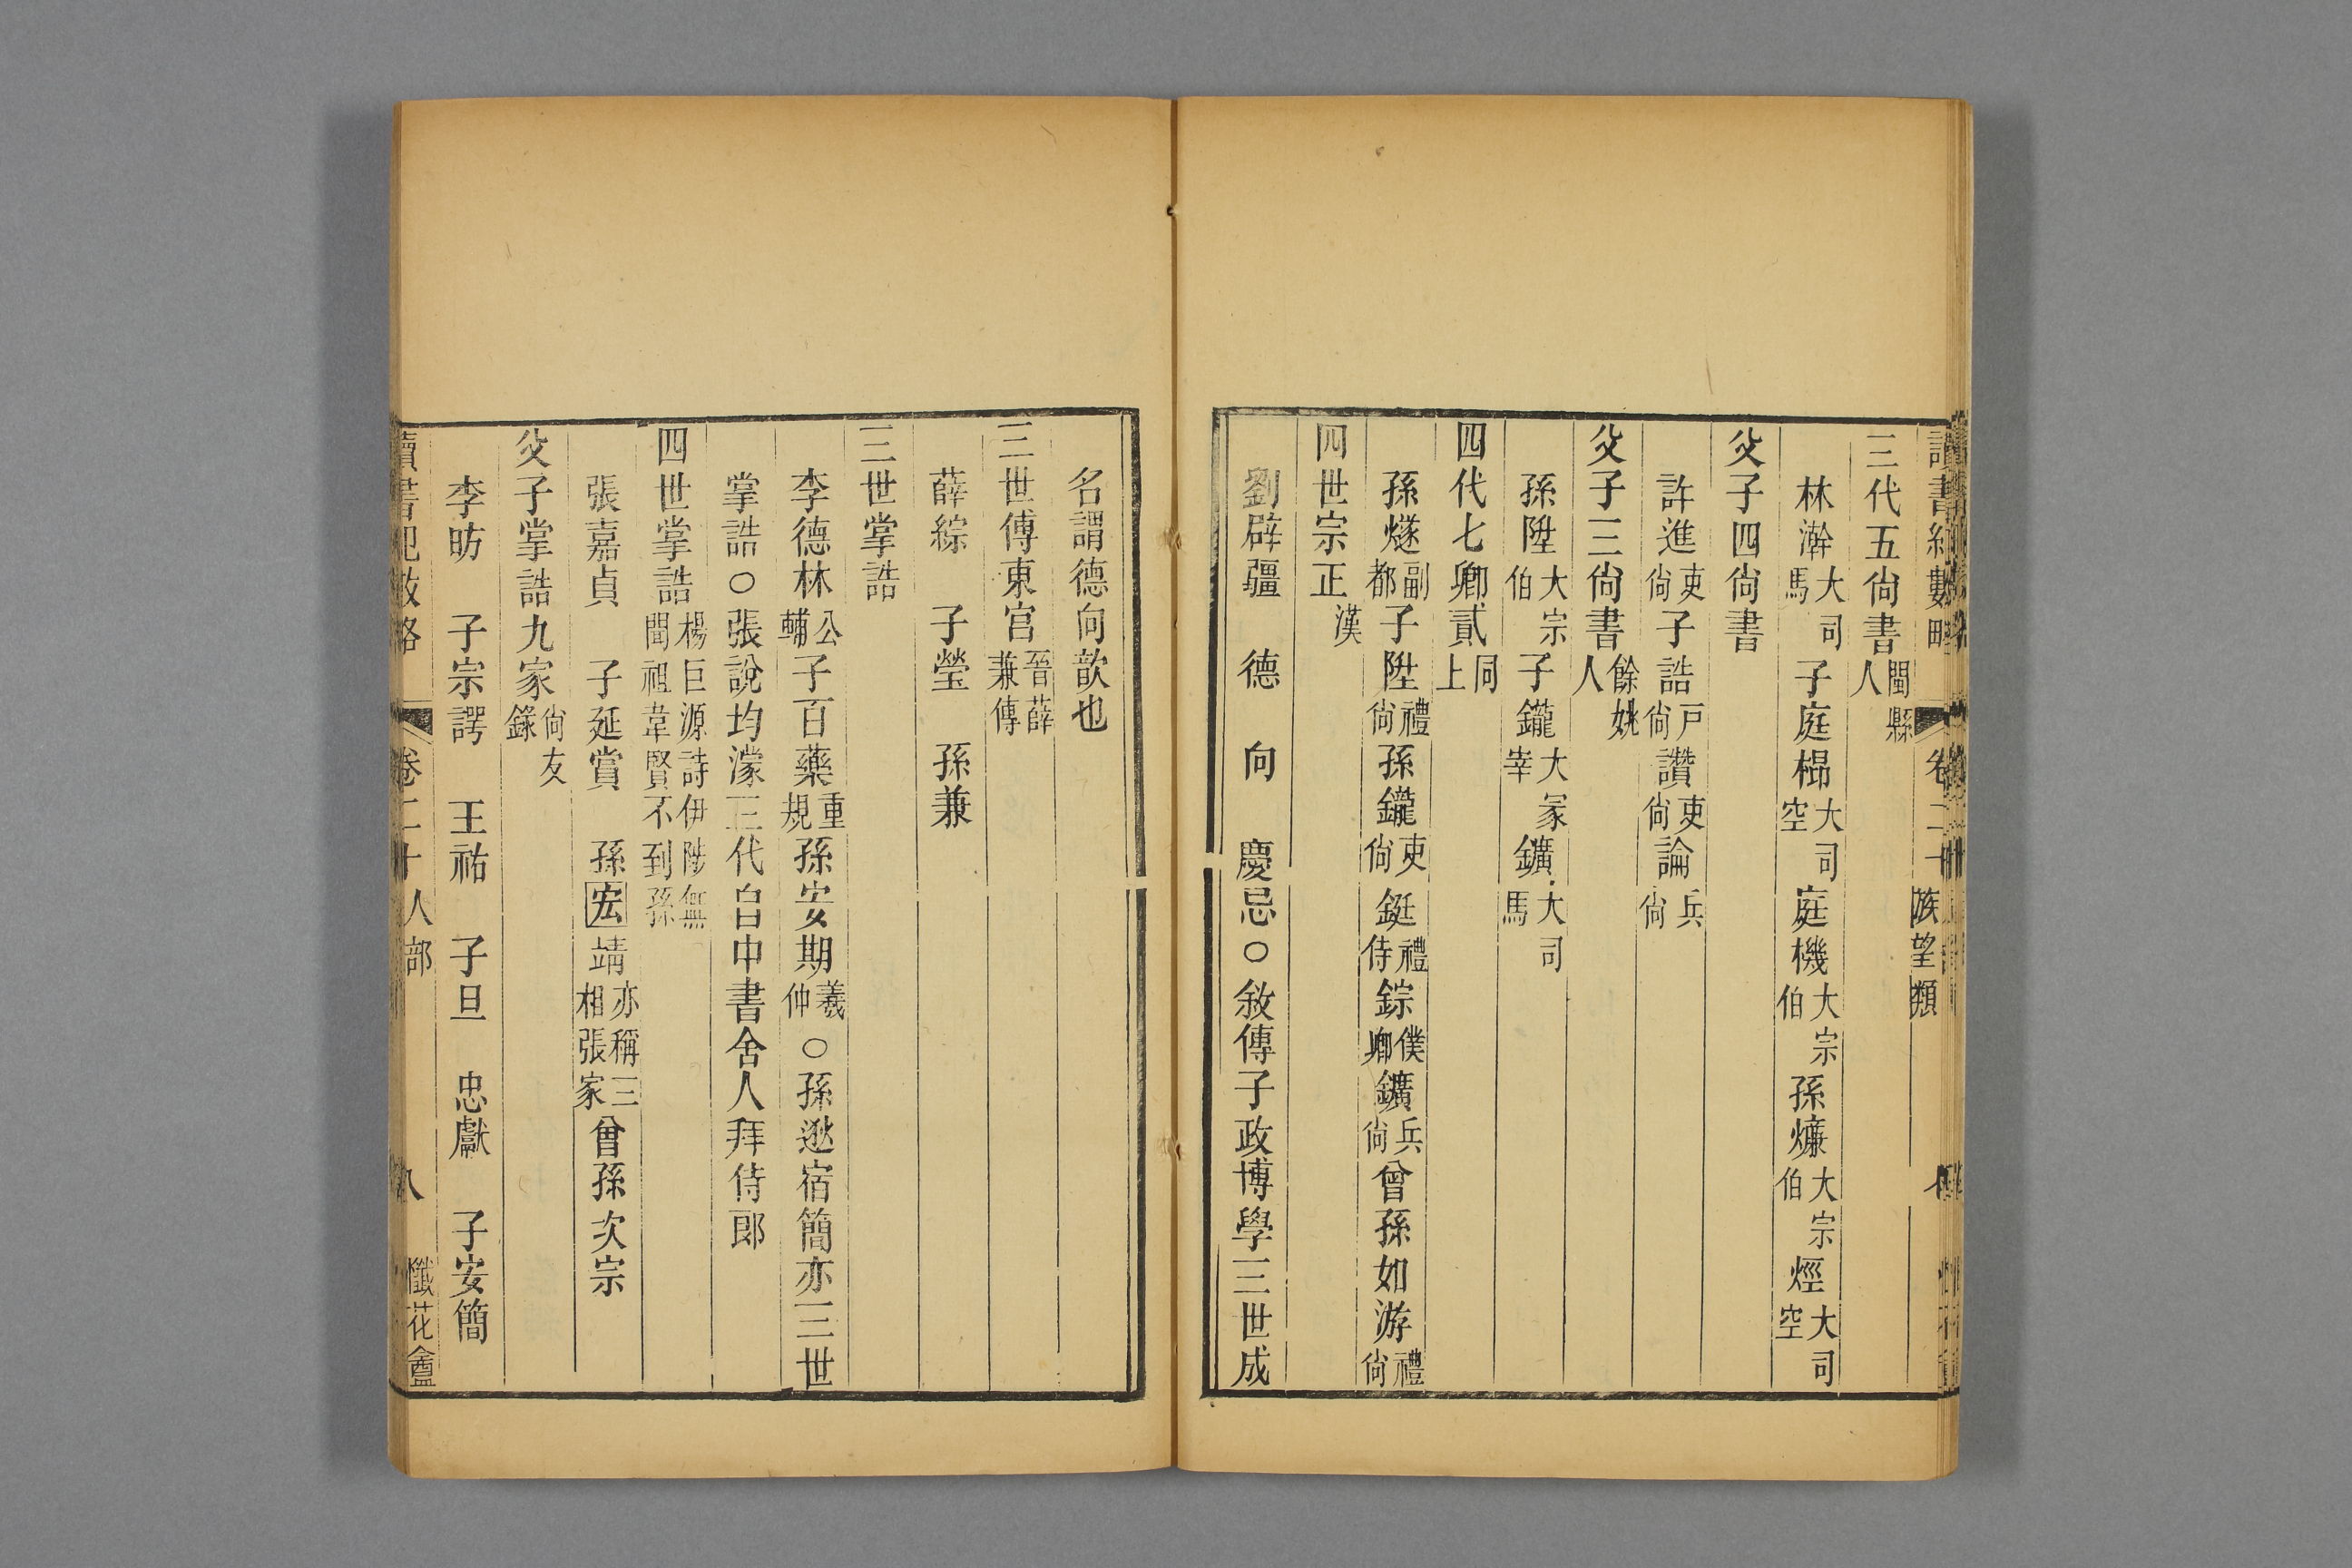 讀書紀數略 卷二十 族望類
三代五尙書閩縣人
林瀚大司馬 子庭㭿大司空 庭機大宗伯 孫燫大宗伯 烴大司空
父子四尙書
許進吏尙 子誥戸尙 讚吏尙 論兵尙
父子三尙書餘姚人
孫陞大宗伯 子鑨大冢宰 鑛大司馬
四代七卿貳同上
孫燧副都 子陞禮尙 孫鑨吏尙 鋌禮侍 錝僕卿 鑛兵尙 曾孫如游禮尙
四世宗正漢
劉辟疆 德 向 慶忌○敘傳子政博學三世成
名謂德向歆也
三世傅東宮晉薛兼傳
薛綜 子瑩 孫兼
三世掌誥
李德林公輔 子百藥重規 孫安期羲仲 ○孫逖宿簡亦三世
掌誥○張說均濛三代自中書舍人拜侍郎
四世掌誥楊巨源詩伊陟無聞祖韋賢不到孫
張嘉貞 子延賞 孫宏靖亦稱三相張家 曾孫次宗
父子掌誥九家尙友錄
李昉 子宗諤 王祐 子旦 忠獻 子安簡
讀書紀數略 卷二十 人部 八 懺花盦